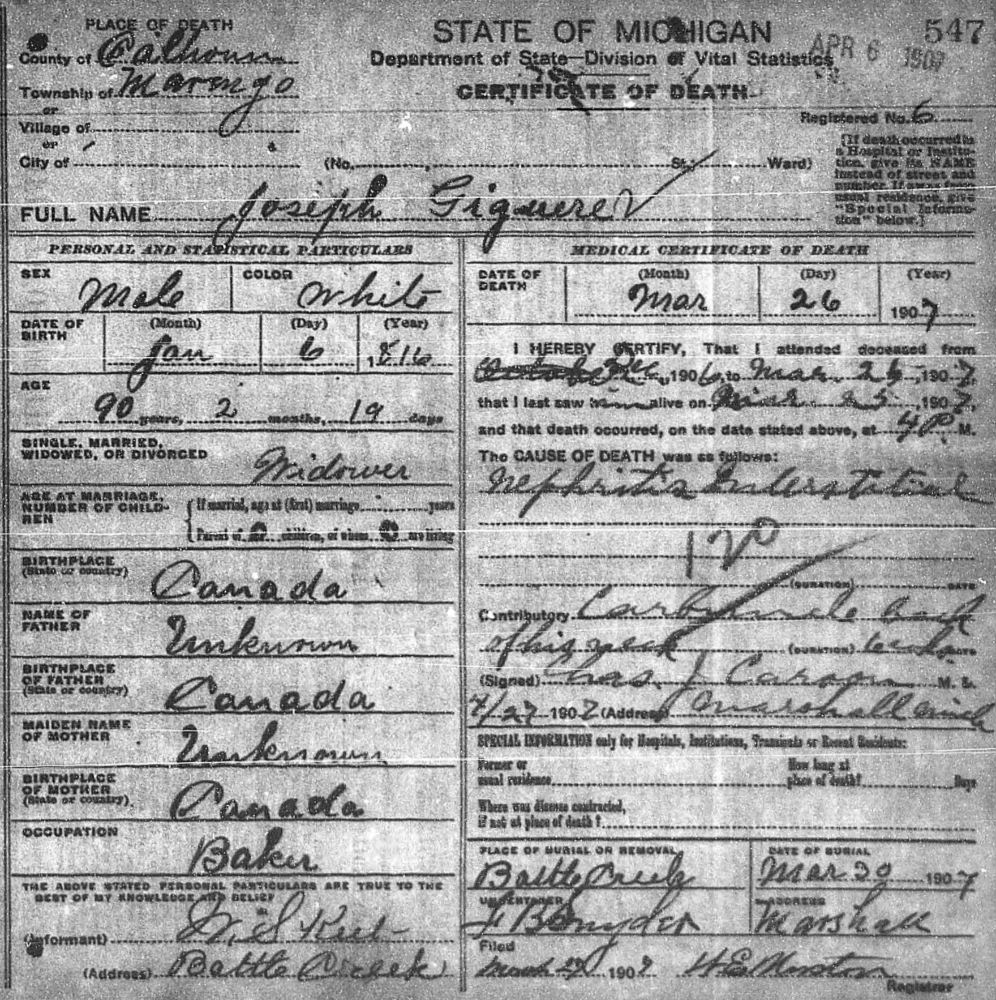 PLACE OF DEATH
County of Calhoun
Township of Marengo
or
Village of
or
City of
STATE OF MICHIGAN
Department of State—Division of Vital Statistics
CERTIFICATE OF DEATH
547
APR 6 1907
Registered No. 6
(No. St., Ward)
[If death occurred in
a Hospital or Institu-
tion, give its NAME
instead of street and
number. If away from
usual residence, give
"Special Informa-
tion" below.]
FULL NAME Joseph Giguere
PERSONAL AND STATISTICAL PARTICULARS
SEX Male
COLOR White
DATE OF BIRTH
(Month) (Day) (Year)
Jan 6 1816
AGE
90 years, 2 months, 19 days
SINGLE, MARRIED,
WIDOWED, OR DIVORCED
Widower
AGE AT MARRIAGE,
NUMBER OF CHILD-
REN
If married, age at (first) marriage years
Parent of 2 children, of whom 0 are living
BIRTHPLACE
(State or country)
Canada
NAME OF
FATHER
Unknown
BIRTHPLACE
OF FATHER
(State or country)
Canada
MAIDEN NAME
OF MOTHER
Unknown
BIRTHPLACE
OF MOTHER
(State or country)
Canada
OCCUPATION
Baker
THE ABOVE STATED PERSONAL PARTICULARS ARE TRUE TO THE
BEST OF MY KNOWLEDGE AND BELIEF
(Informant)
(Address) Battle Creek
MEDICAL CERTIFICATE OF DEATH
DATE OF DEATH
(Month) (Day) (Year)
Mar 26 1907
I HEREBY CERTIFY, That I attended deceased from
1906, to Mar. 26, 1907,
that I last saw him alive on Mar 25 1907,
and that death occurred, on the date stated above, at 4 P. M.
The CAUSE OF DEATH was as follows:
Nephritis Interstitial
120
(DURATION) DAYS
Contributory Carbuncle back
of his neck (DURATION) 6 wks DAYS
(Signed) J. Carson M. D.
/27 1907 (Address) Marshall Mich
SPECIAL INFORMATION only for Hospitals, Institutions, Transients or Recent Residents:
Former or
usual residence
How long at
place of death? Days
Where was disease contracted,
if not at place of death?
PLACE OF BURIAL OR REMOVAL
Battle Creek
DATE OF BURIAL
Mar 30 1907
UNDERTAKER
F B Snyder
ADDRESS
Marshall
Filed
March 27 1907
Registrar